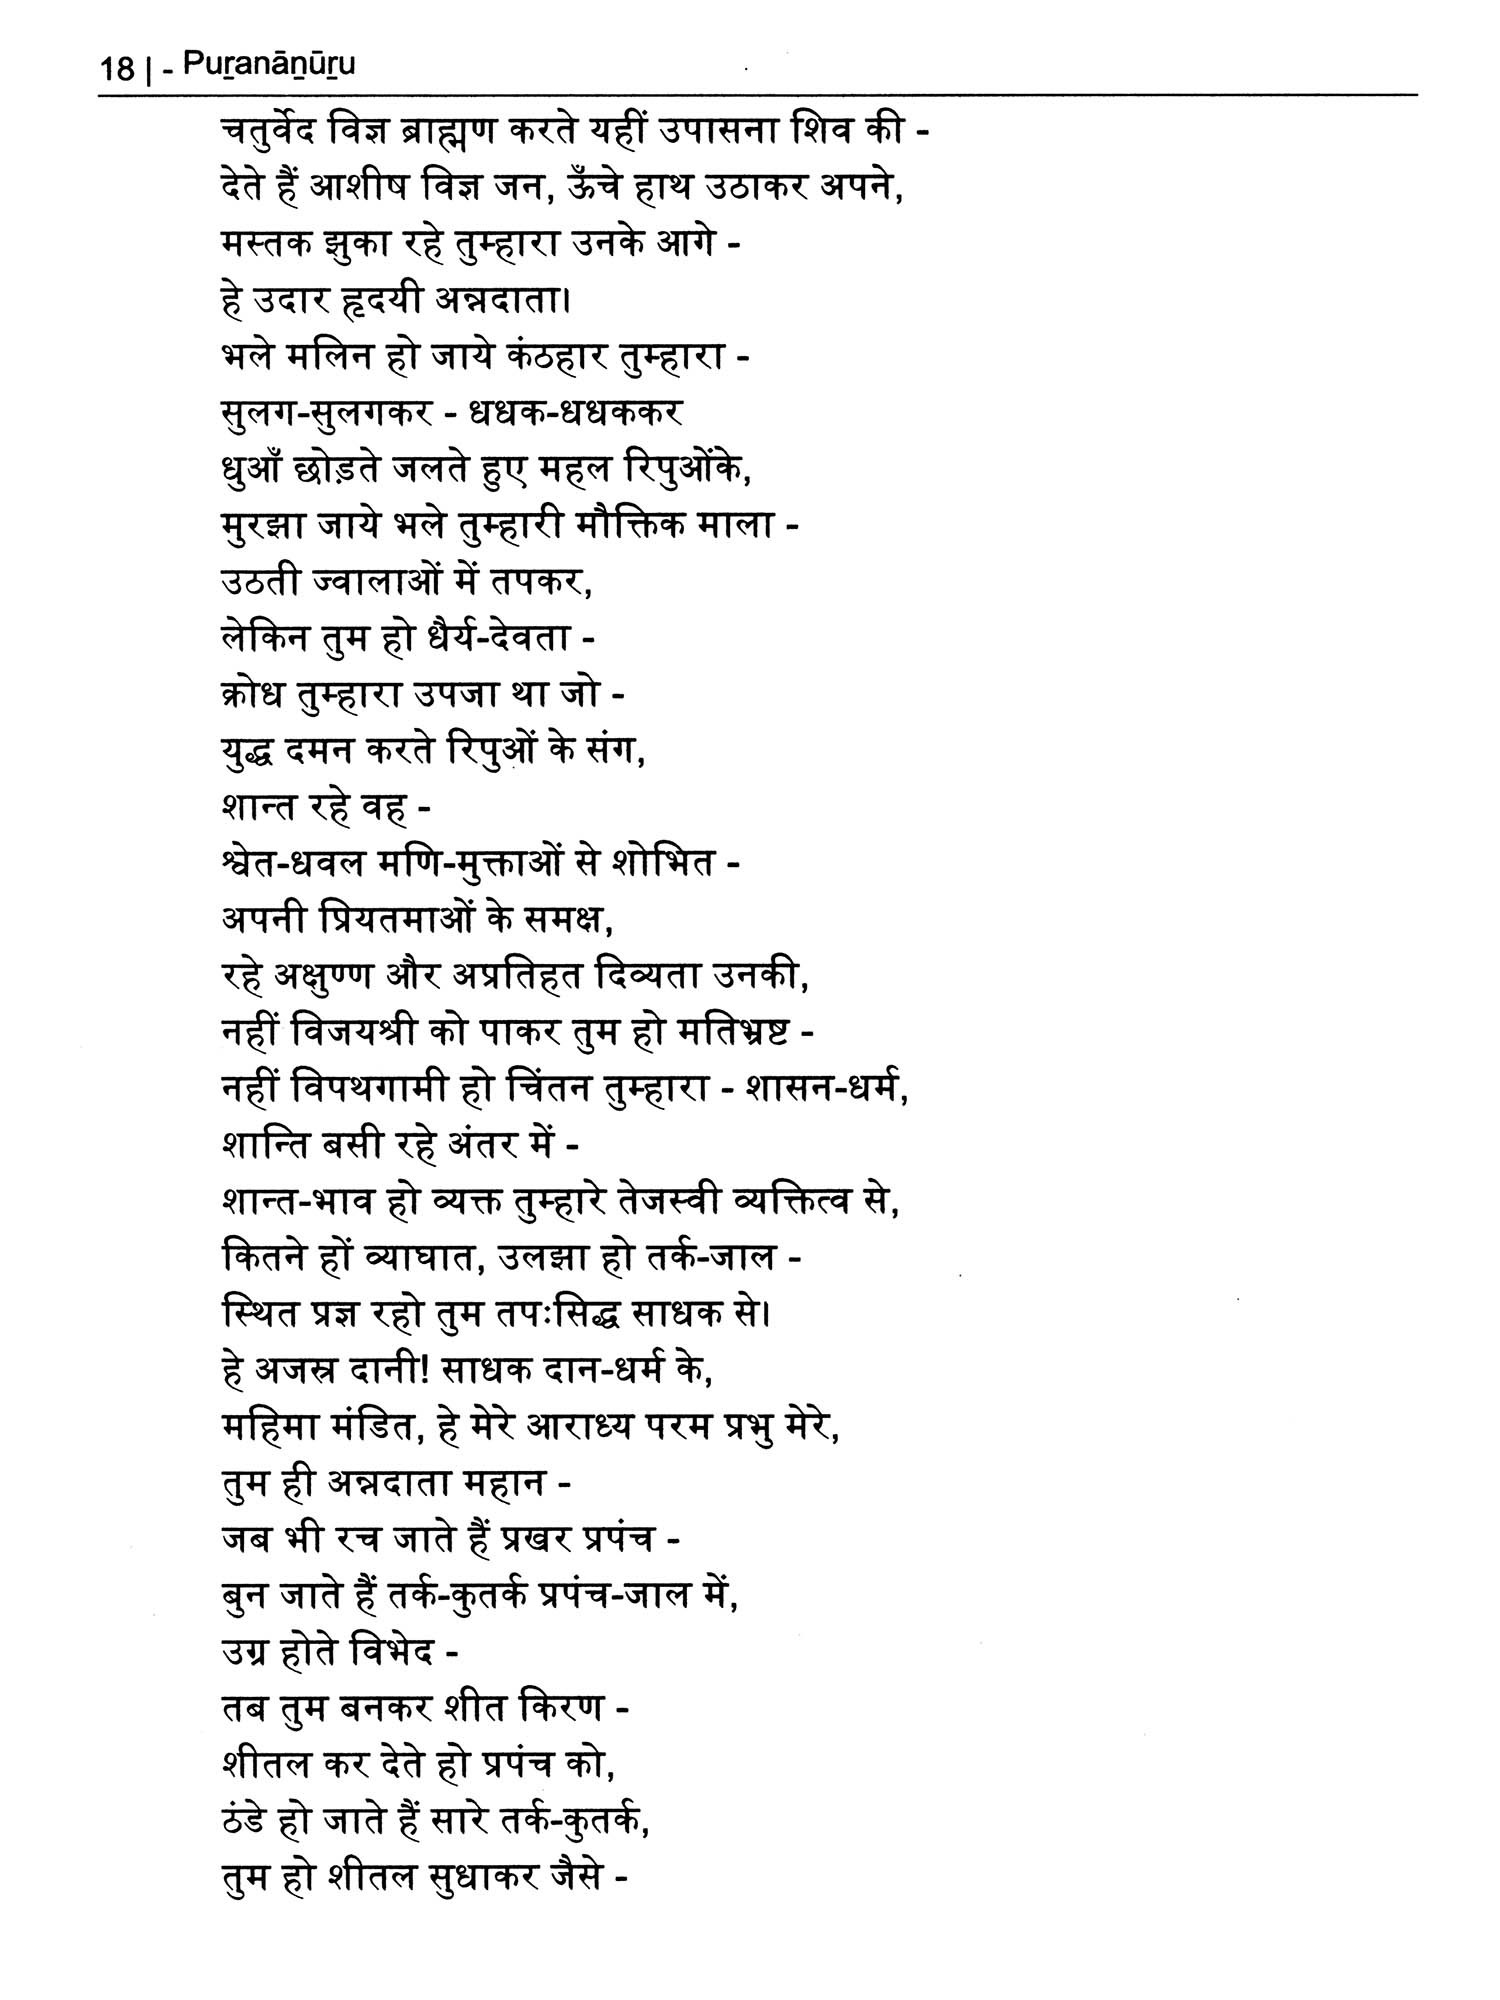 18 | - Puṟanāṉūṟu
चतुर्वेद विज्ञ ब्राह्मण करते यहीं उपासना शिव की -
देते हैं आशीष विज्ञ जन, ऊँचे हाथ उठाकर अपने,
मस्तक झुका रहे तुम्हारा उनके आगे -
हे उदार हृदयी अन्नदाता।
भले मलिन हो जाये कंठहार तुम्हारा -
सुलग-सुलगकर - धधक-धधककर
धुआँ छोड़ते जलते हुए महल रिपुओंके,
मुरझा जाये भले तुम्हारी मौक्तिक माला -
उठती ज्वालाओं में तपकर,
लेकिन तुम हो धैर्य-देवता -
क्रोध तुम्हारा उपजा था जो -
युद्ध दमन करते रिपुओं के संग,
शान्त रहे वह -
श्वेत-धवल मणि-मुक्ताओं से शोभित -
अपनी प्रियतमाओं के समक्ष,
रहे अक्षुण्ण और अप्रतिहत दिव्यता उनकी,
नहीं विजयश्री को पाकर तुम हो मतिभ्रष्ट -
नहीं विपथगामी हो चिंतन तुम्हारा - शासन-धर्म,
शान्ति बसी रहे अंतर में -
शान्त-भाव हो व्यक्त तुम्हारे तेजस्वी व्यक्तित्व से,
कितने हों व्याघात, उलझा हो तर्क-जाल -
स्थित प्रज्ञ रहो तुम तपःसिद्ध साधक से।
हे अजस्र दानी! साधक दान-धर्म के,
महिमा मंडित, हे मेरे आराध्य परम प्रभु मेरे,
तुम ही अन्नदाता महान -
जब भी रच जाते हैं प्रखर प्रपंच -
बुन जाते हैं तर्क-कुतर्क प्रपंच-जाल में,
उग्र होते विभेद -
तब तुम बनकर शीत किरण -
शीतल कर देते हो प्रपंच को,
ठंडे हो जाते हैं सारे तर्क-कुतर्क,
तुम हो शीतल सुधाकर जैसे -